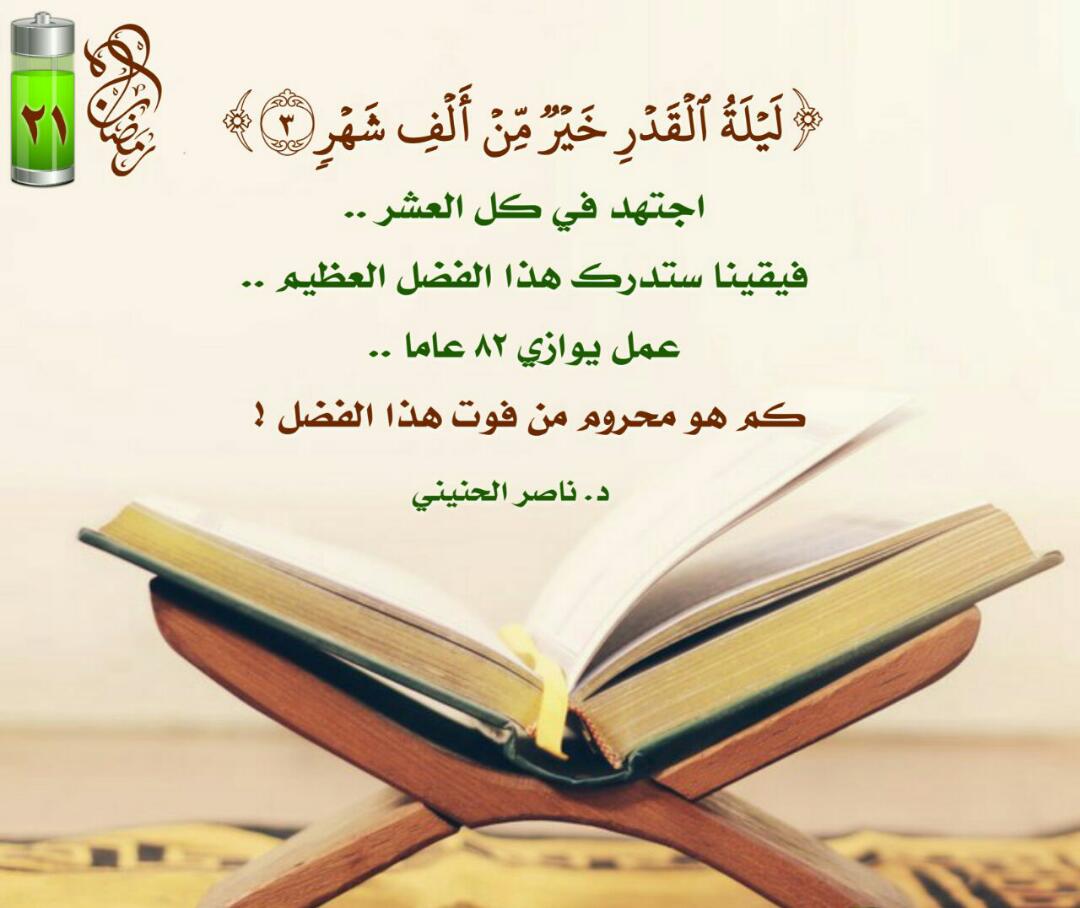 رمضان
٢١
﴿لَيۡلَةُ ٱلۡقَدۡرِ خَيۡرٞ مِّنۡ أَلۡفِ شَهۡرٖ ٣﴾
اجتهد في كل العشر ..
فيقينا ستدرك هذا الفضل العظيم ..
عمل يوازي ٨٢ عاما ..
كم هو محروم من فوت هذا الفضل !
د. ناصر الحنيني